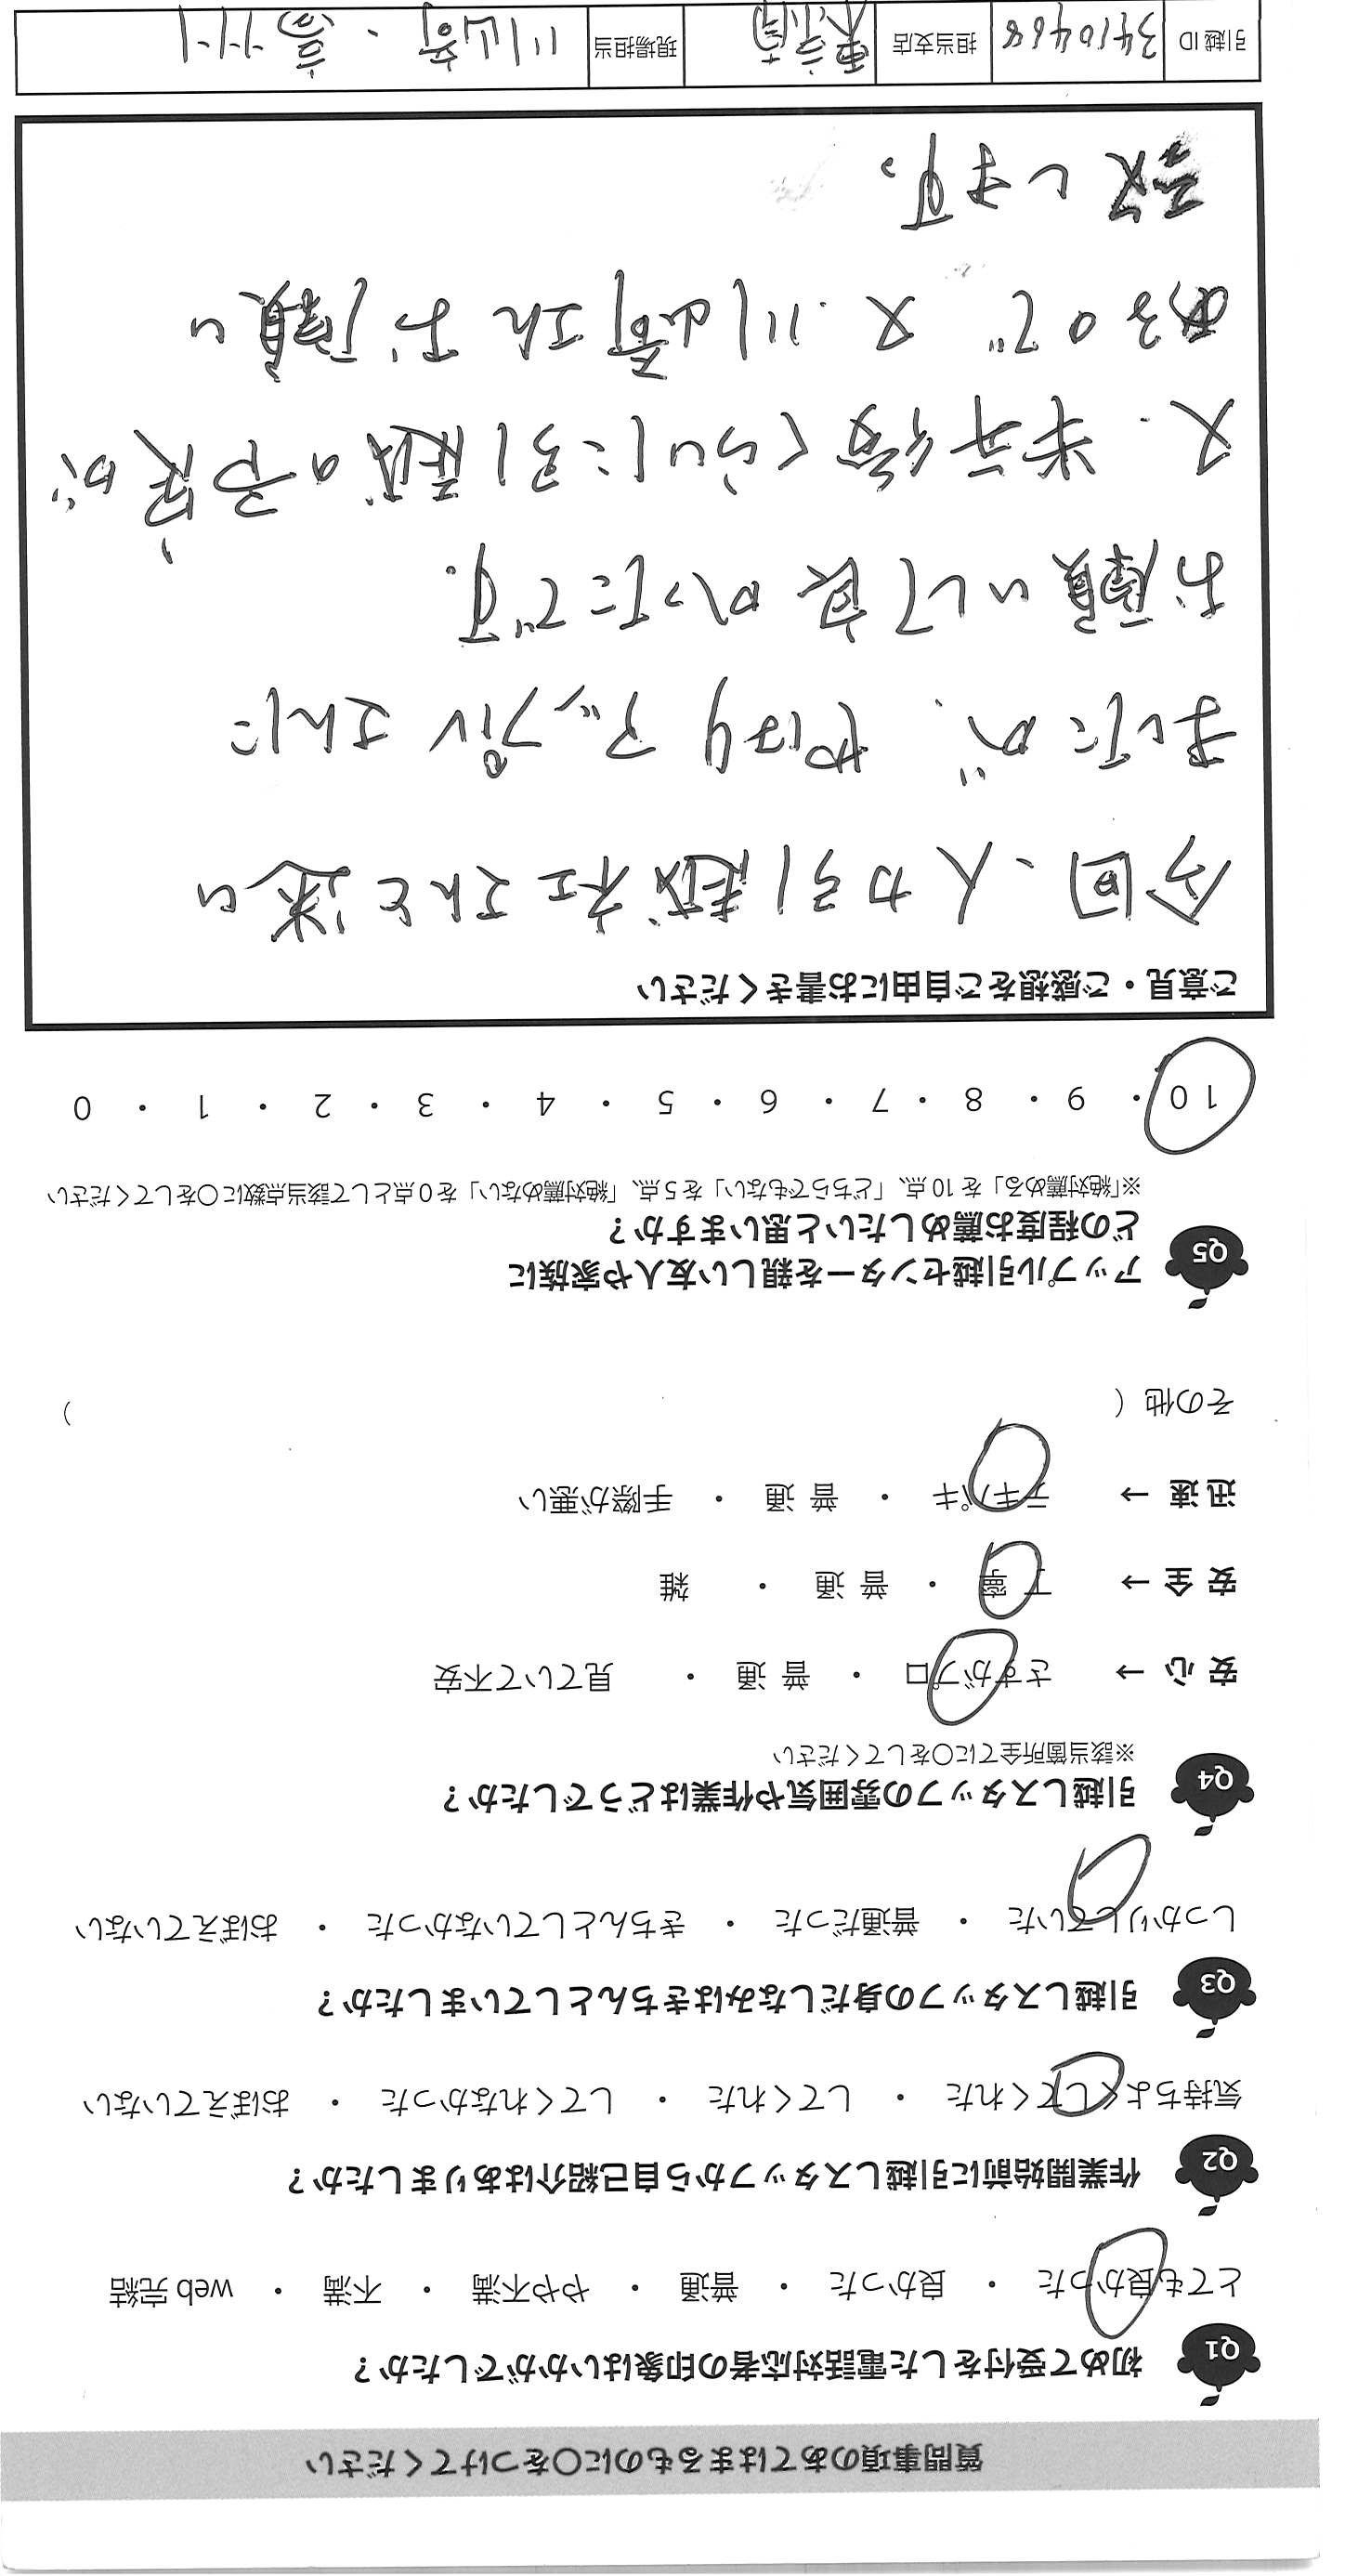 質問事項のあてはまるものに○をつけてください
Q1 初めて受付をした電話対応者の印象はいかがでしたか？
とても良かった ・ 良かった ・ 普通 ・ やや不満 ・ 不満 ・ web 完結
Q2 作業開始前に引越しスタッフから自己紹介はありましたか？
気持ちよくしてくれた ・ してくれた ・ してくれなかった ・ おぼえていない
Q3 引越しスタッフの身だしなみはきちんとしていましたか？
しっかりしていた ・ 普通だった ・ きちんとしていなかった ・ おぼえていない
Q4 引越しスタッフの雰囲気や作業はどうでしたか？
※該当箇所全てに○をしてください
安心 → さすがプロ ・ 普通 ・ 見ていて不安
安全 → 丁寧 ・ 普通 ・ 雑
迅速 → テキパキ ・ 普通 ・ 手際が悪い
その他（ ）
Q5 アップル引越センターを親しい友人や家族に
どの程度お薦めしたいと思いますか？
※「絶対薦める」を 10 点、「どちらでもない」を 5 点、「絶対薦めない」を 0 点として該当点数に○をしてください
10 ・ 9 ・ 8 ・ 7 ・ 6 ・ 5 ・ 4 ・ 3 ・ 2 ・ 1 ・ 0
ご意見・ご感想をご自由にお書きください
今回、人力引越社さんと迷い
ましたが、やはりアップルさんに
お願いして良かったです。
又、半年後くらいに引越の予定が
あるので、又、川崎さんお願い
致します。
引越ID 3410468 担当支店 現場担当 川崎・